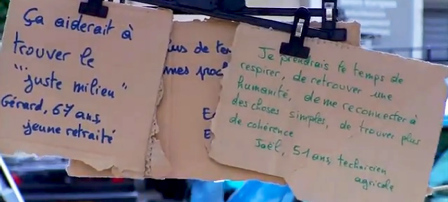 Ça aiderait à
trouver le
"juste milieu"
Gérard, 67 ans,
jeune retraité
us de te
mes pro
E
E
Je prendrais le temps de
respirer, de retrouver une
humanité, de me reconnecter à
des choses simples, de trouver plus
de cohérence
Joël, 51 ans, technicien
agricole